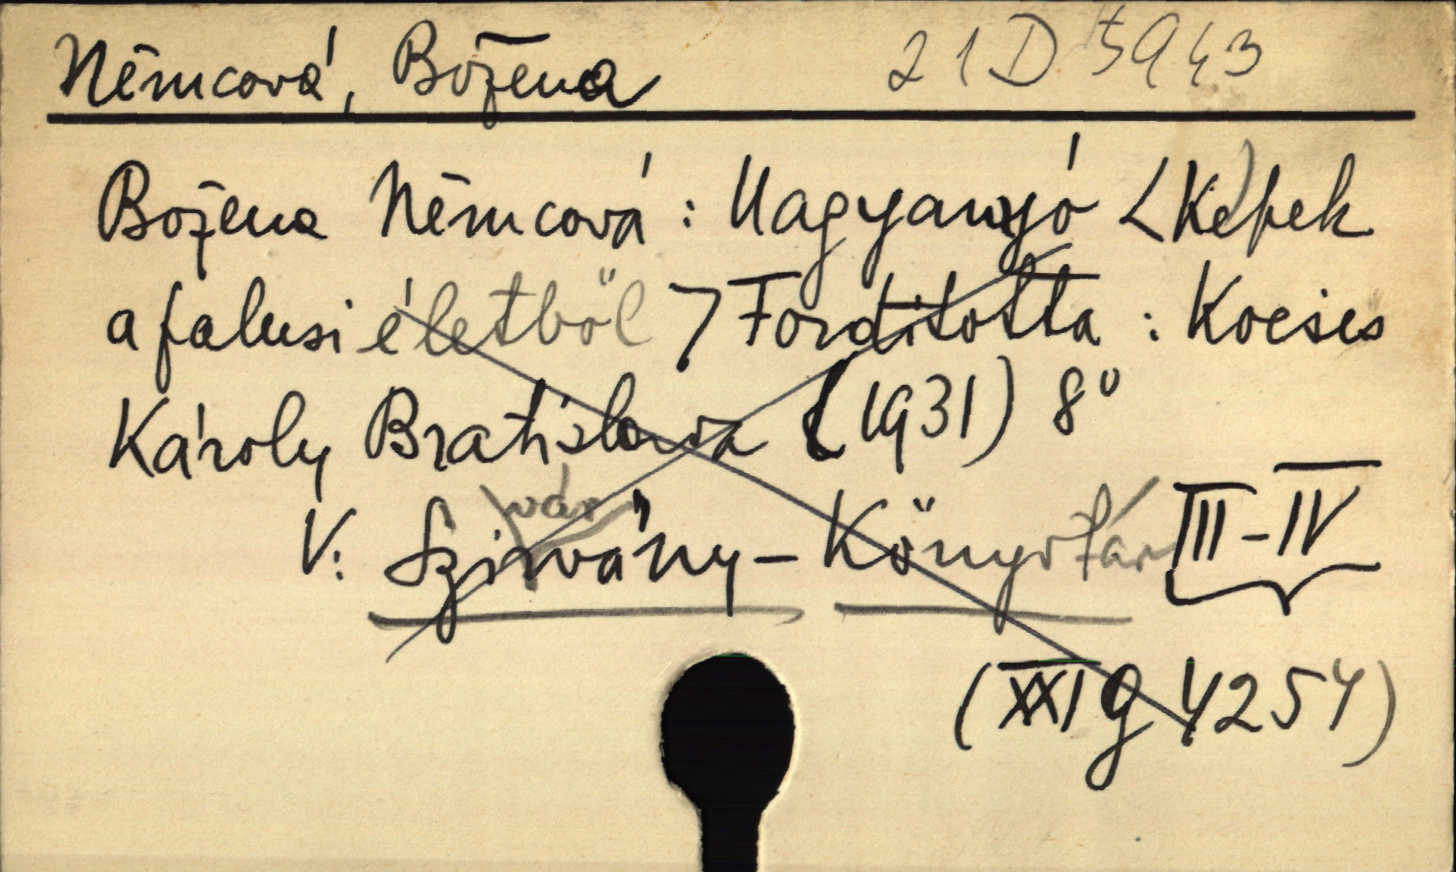 Němcová, Božena 21 D 5943
Božena Němcová: Nagyanyó <Képek
a falusi életből> Fordította: Kocsis
Károly Bratislava (1931) 8°
V: Szivárvány-Könyvtár III-IV
(XXI g 4254)